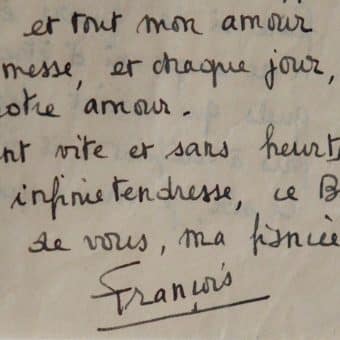 et tout mon amour
messe, et chaque jour,
otre amour.
nt vite et sans heurts
infinie tendresse, ce B
de vous, ma fiancée
François